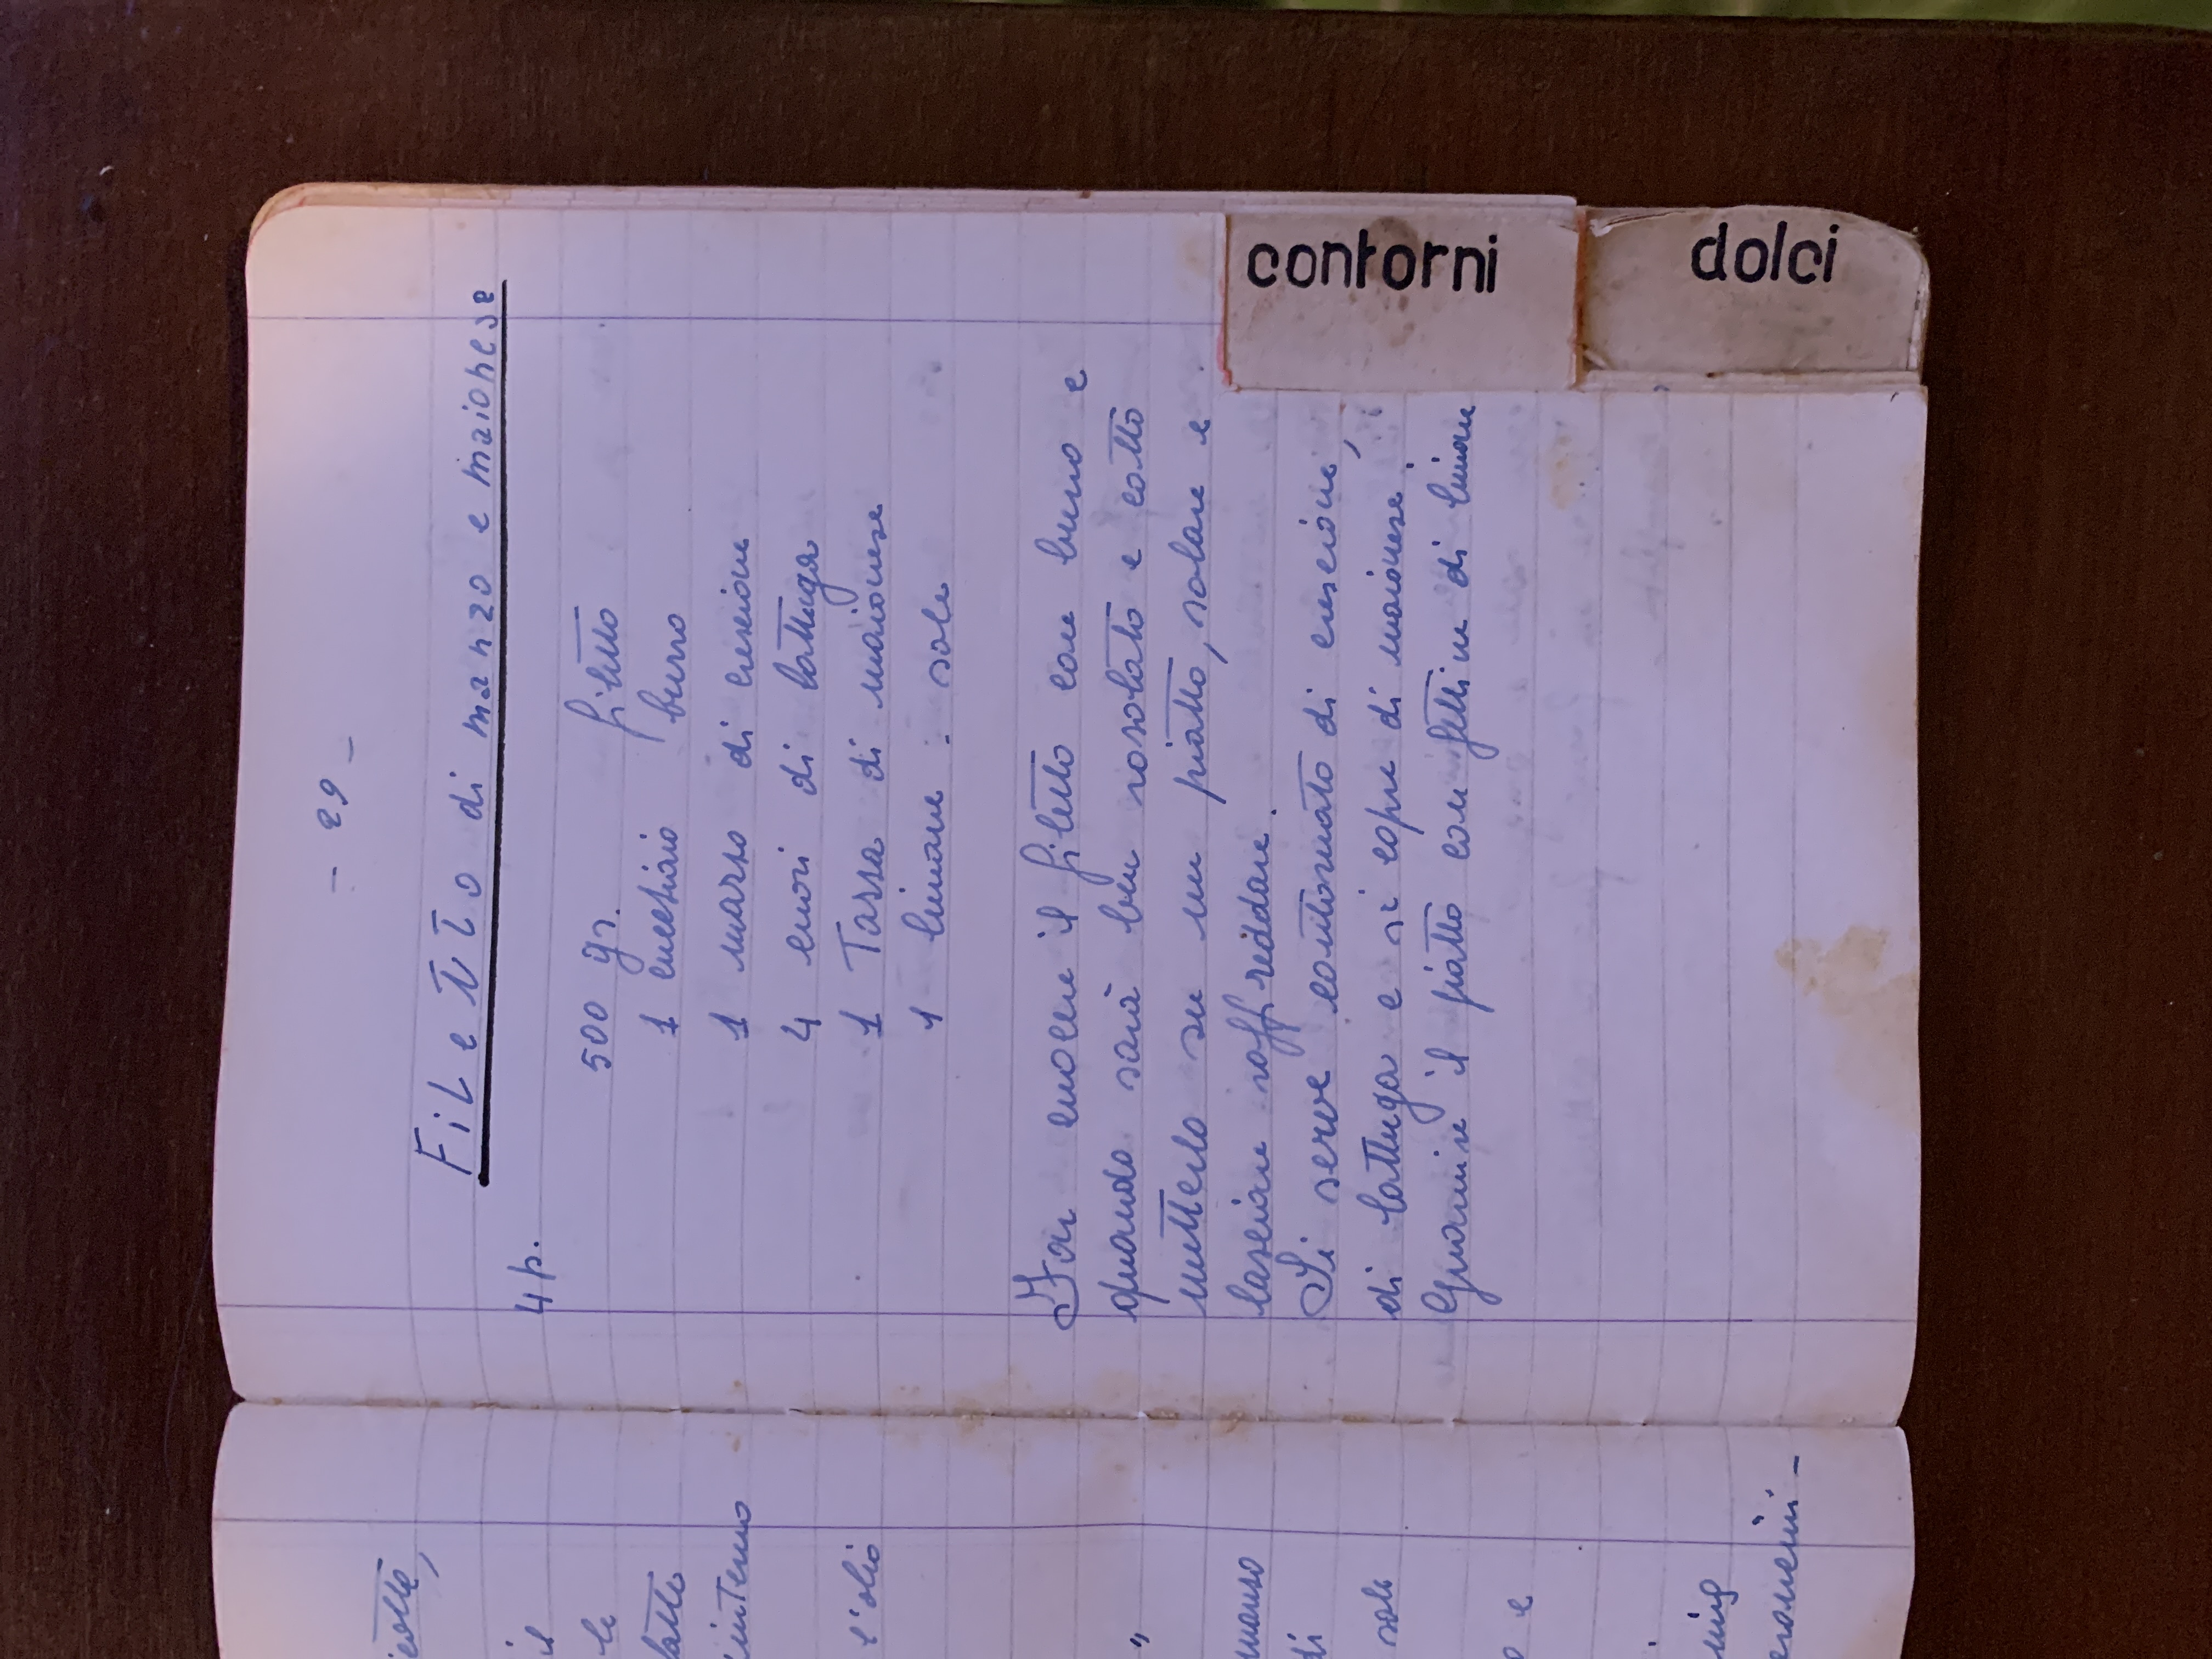 cotte,
il
le
latte
interno
l'olio
"
manzo
di
sale
o e
- 29 -
Filetto di manzo e maionese
4 p.
500 gr. filetto
1 cucchiaio burro
1 mazzo di crescione
4 cuori di lattuga
1 Tazza di maionese
1 limone . sale
Far cuocere il filetto con burro e
quando sarà ben rosolato e cotto
metterlo su un piatto, salare e
lasciare raffreddare.
Si serve contornato di crescione,
di lattuga e si copre di maionese.
Guarnire il piatto con fettine di limone
contorni
dolci